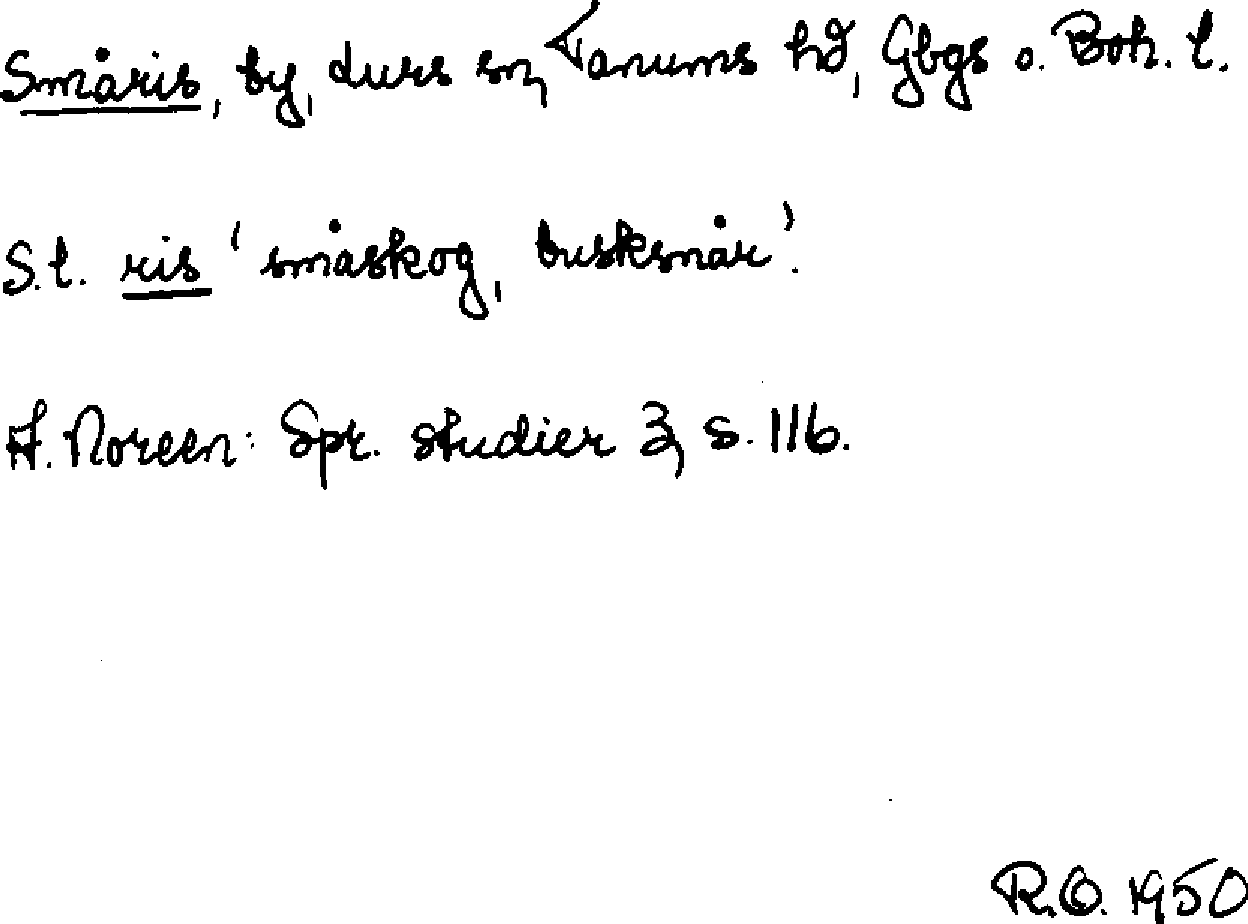 Småris, by, Lurs sn, Tanums hd, Gbgs o. Boh. l.
S.l. ris 'småskog, busksnår'.
A. Noreen: Spr. studier 3, s. 116.
R.O. 1950